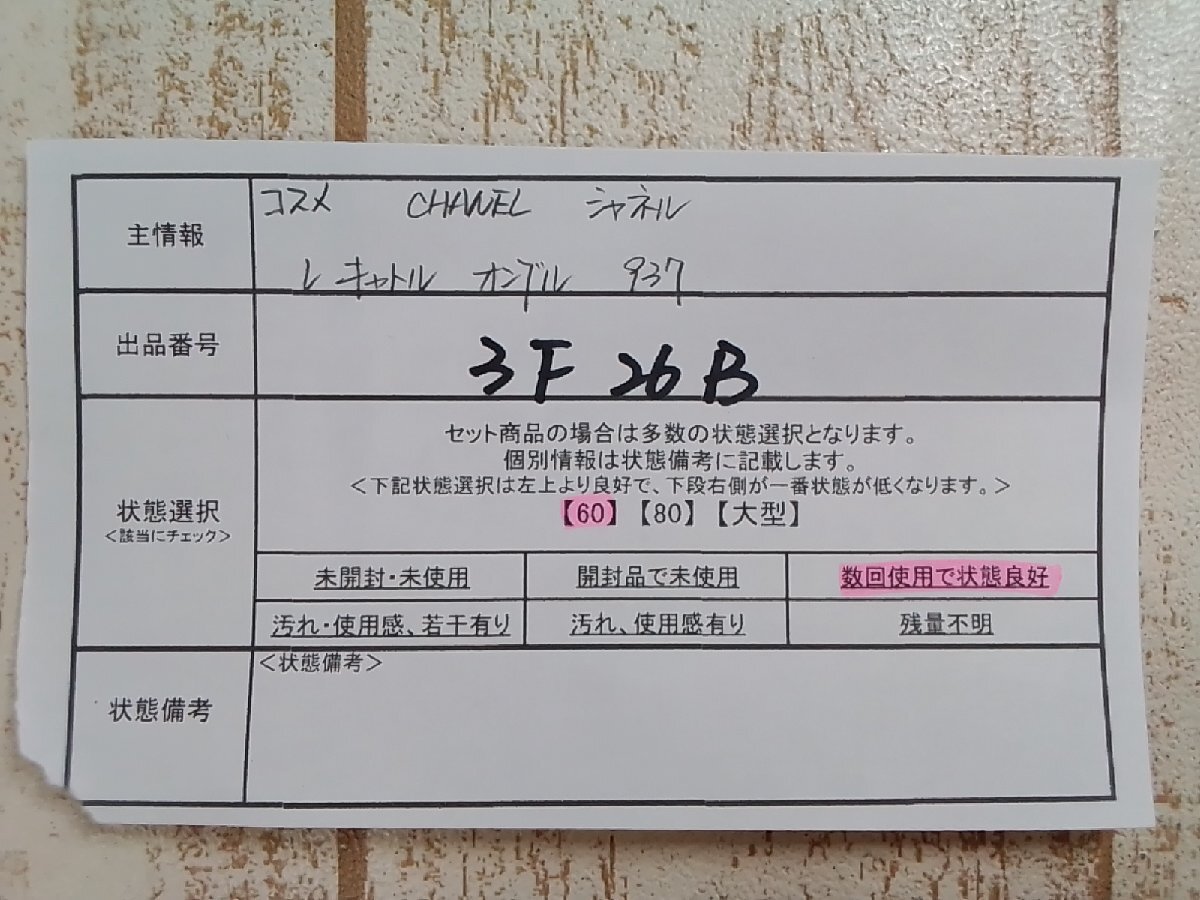 主情報
コスメ CHANEL シャネル
レ キャトル オンブル 937
出品番号
3F 26B
状態選択
<該当にチェック>
セット商品の場合は多数の状態選択となります。
個別情報は状態備考に記載します。
<下記状態選択は左上より良好で、下段右側が一番状態が低くなります。>
【60】【80】【大型】
未開封・未使用 開封品で未使用 数回使用で状態良好
汚れ・使用感、若干有り 汚れ、使用感有り 残量不明
状態備考
<状態備考>